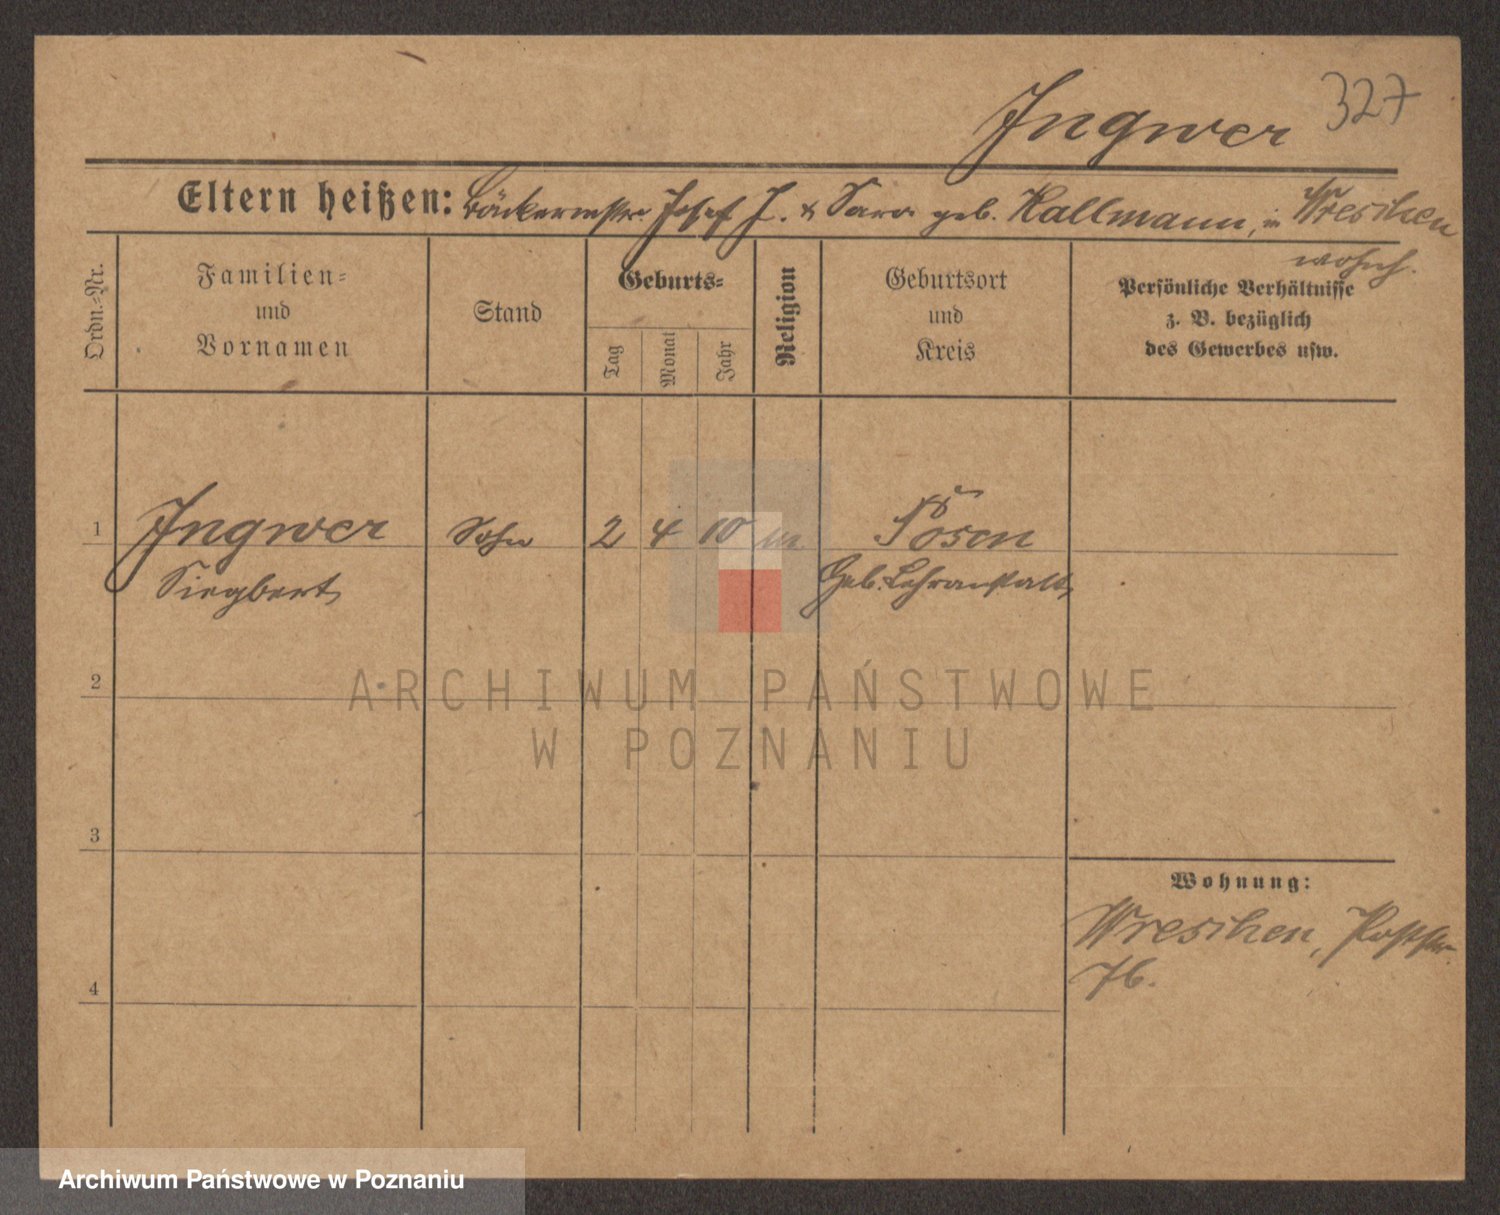 327
Ingwer
Eltern heißen: Bäckermstr. Josef J. & Sara geb. Kallmann, in Wreschen
wohnh.
Ordn.=Nr.
Familien=
und
Vornamen
Stand
Geburts=
Tag
Monat
Jahr
Religion
Geburtsort
und
Kreis
Persönliche Verhältnisse
z. B. bezüglich
des Gewerbes usw.
1 Ingwer Sohn 2 4 10 m. Posen
Siegbert Geb. Lehranstalt
2
ARCHIWUM PAŃSTWOWE
W POZNANIU
3
Wohnung:
Wreschen, Poststr.
76.
4
Archiwum Państwowe w Poznaniu